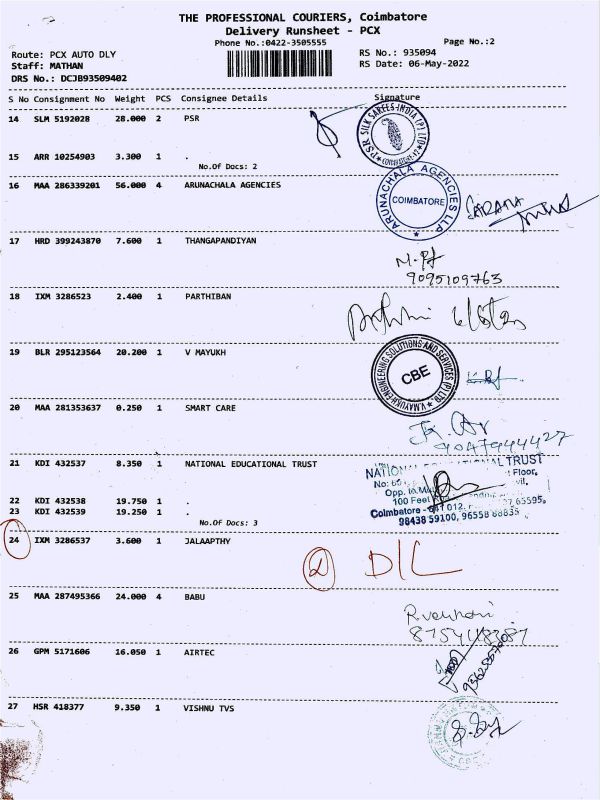 THE PROFESSIONAL COURIERS, Coimbatore
Delivery Runsheet - PCX
Phone No.:0422-3505555
Page No.:2
Route: PCX AUTO DLY
RS No.: 935094
Staff: MATHAN
RS Date: 06-May-2022
DRS No.: DCJB93509402
S No Consignment No Weight PCS Consignee Details Signature
14 SLM 5192028 28.000 2 PSR
PSR SILK SAREES INDIA (P) LTD
15 ARR 10254903 3.300 1 .
No.Of Docs: 2
16 MAA 286339201 56.000 4 ARUNACHALA AGENCIES
ARUNACHALA AGENCIES LLP
COIMBATORE
17 HRD 399243870 7.600 1 THANGAPANDIYAN
9095109763
18 IXM 3286523 2.400 1 PARTHIBAN
19 BLR 295123564 20.200 1 V MAYUKH
V.MAYUKH ENGINEERING SOLUTIONS AND SERVICES (P) LTD
CBE
20 MAA 281353637 0.250 1 SMART CARE
9047944427
21 KDI 432537 8.350 1 NATIONAL EDUCATIONAL TRUST
TRUST
Floor,
Opp.
100 Feet
22 KDI 432538 19.750 1 .
Coimbatore - 641 012.
23 KDI 432539 19.250 1 .
98438 59100, 96558 88835
No.Of Docs: 3
24 IXM 3286537 3.600 1 JALAAPTHY
D/L
25 MAA 287495366 24.000 4 BABU
26 GPM 5171606 16.050 1 AIRTEC
27 HSR 418377 9.350 1 VISHNU TVS